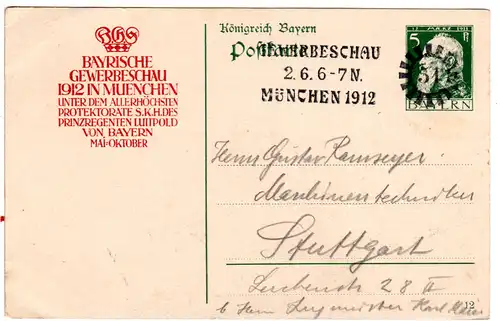 BGS
BAYRISCHE
GEWERBESCHAU
1912 IN MUENCHEN
UNTER DEM ALLERHÖCHSTEN
PROTEKTORATE S.K.H.DES
PRINZREGENTEN LUITPOLD
VON BAYERN
MAI-OKTOBER
Königreich Bayern
Postkarte
GEWERBESCHAU
2.6.6-7N.
MÜNCHEN 1912
5
BAYERN
Herrn Gustav Ramseyer
Maschinentechniker
Stuttgart
28 II
b Herrn Karl
12